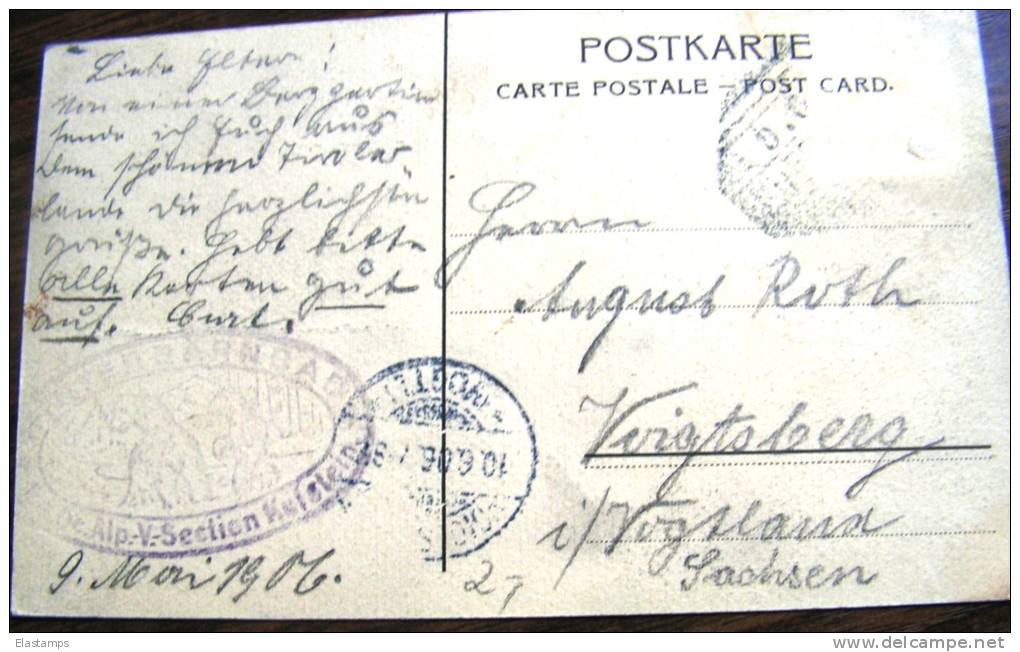 POSTKARTE
CARTE POSTALE – POST CARD.
Liebe Eltern!
Von einer Bergpartie
sende ich Euch aus
dem schönen Tiroler
lande die herzlichsten
Grüße. Hebt bitte
alle Karten gut
auf. Curt.
Alp.-V.-Section Kufstein
9. Mai 1906.
Herrn
August Roth
Voigtsberg
i/Vogtland
Sachsen
10.6.06. 7-8
2,
Elastamps
http://www.delcampe.net